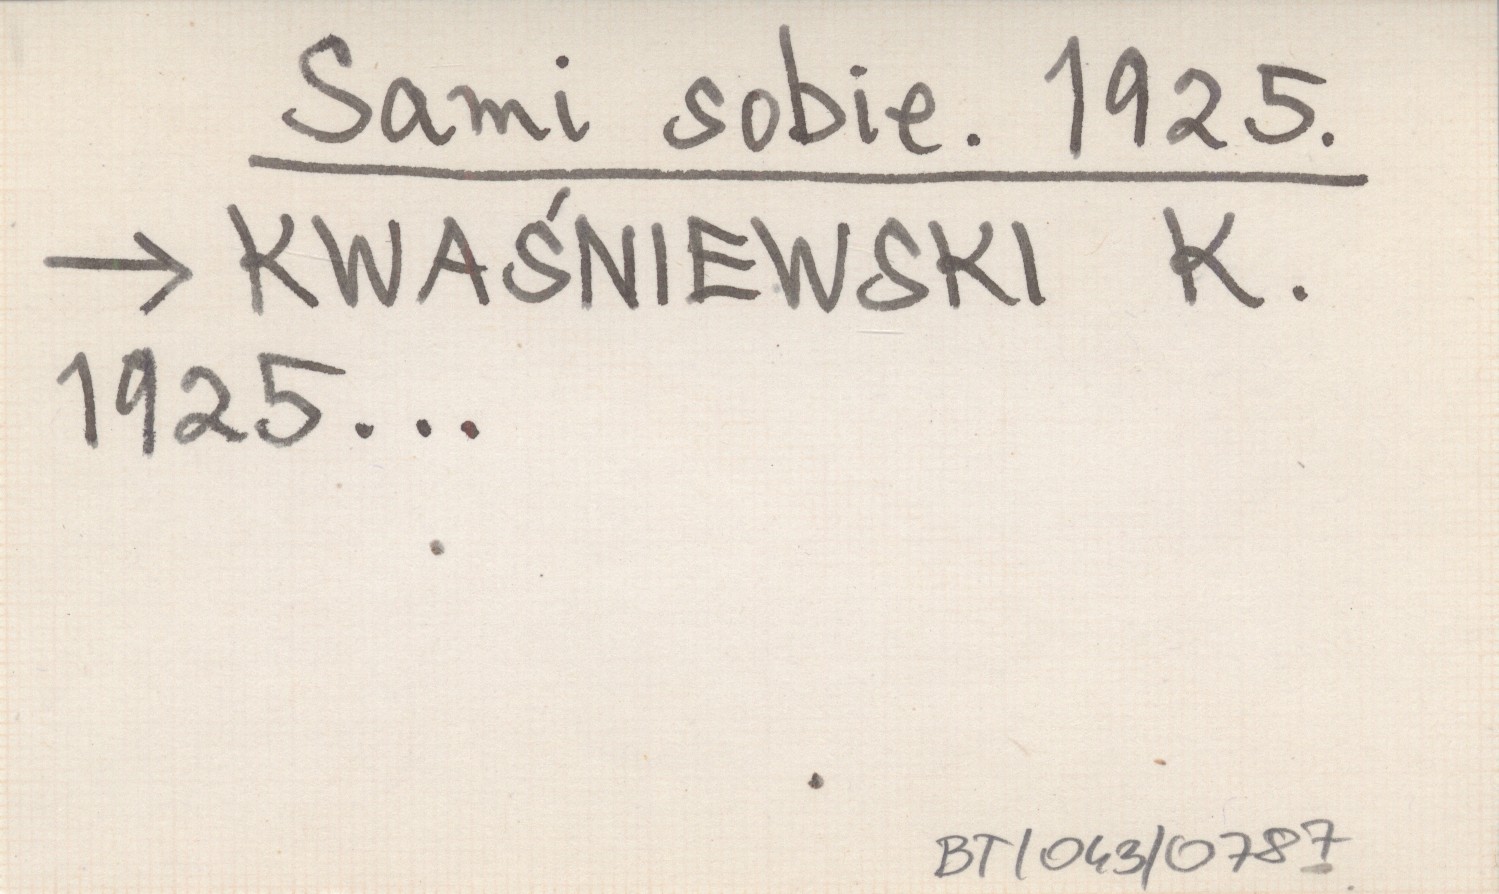 Sami sobie. 1925.
→ KWAŚNIEWSKI K.
1925...
BT/043/0787